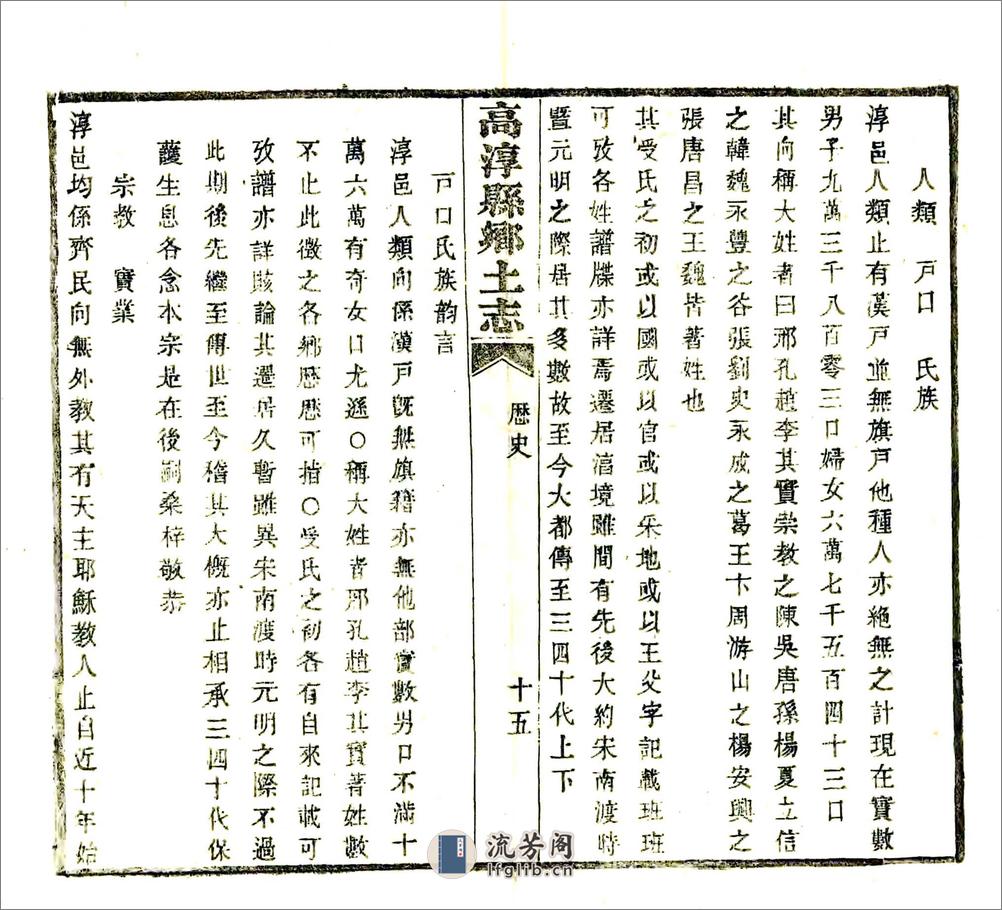 人類　戸口　氏族
淳邑人類止有漢戸並無旗戸他種人亦絕無之計現在實數
男子九萬三千八百零三口婦女六萬七千五百四十三口
其向稱大姓者曰邢孔趙李其實崇教之陳吳唐孫楊夏立信
之韓魏永豐之谷張劉史永成之葛王卞周游山之楊安興之
張唐昌之王魏皆著姓也
其受氏之初或以國或以官或以采地或以王父字記載班班
可攷各姓譜牒亦詳焉遷居淳境雖間有先後大約宋南渡時
暨元明之際居其多數故至今大都傳至三四十代上下
高淳縣鄉土志
歷史
十五
戸口氏族韵言
淳邑人類向係漢戸旣無旗籍亦無他部實數男口不滿十
萬六萬有奇女口尤遜○稱大姓者邢孔趙李其實著姓數
不止此徵之各鄉歷歷可指○受氏之初各有自來記載可
攷譜亦詳賅論其遷居久暫雖異宋南渡時元明之際不過
此期後先繼至傳世至今稽其大槪亦止相承三四十代保
護生息各念本宗是在後嗣桑梓敬恭
宗教　實業
淳邑均係齊民向無外教其有天主耶穌教人止自近十年始
流芳阁
lfglib.cn